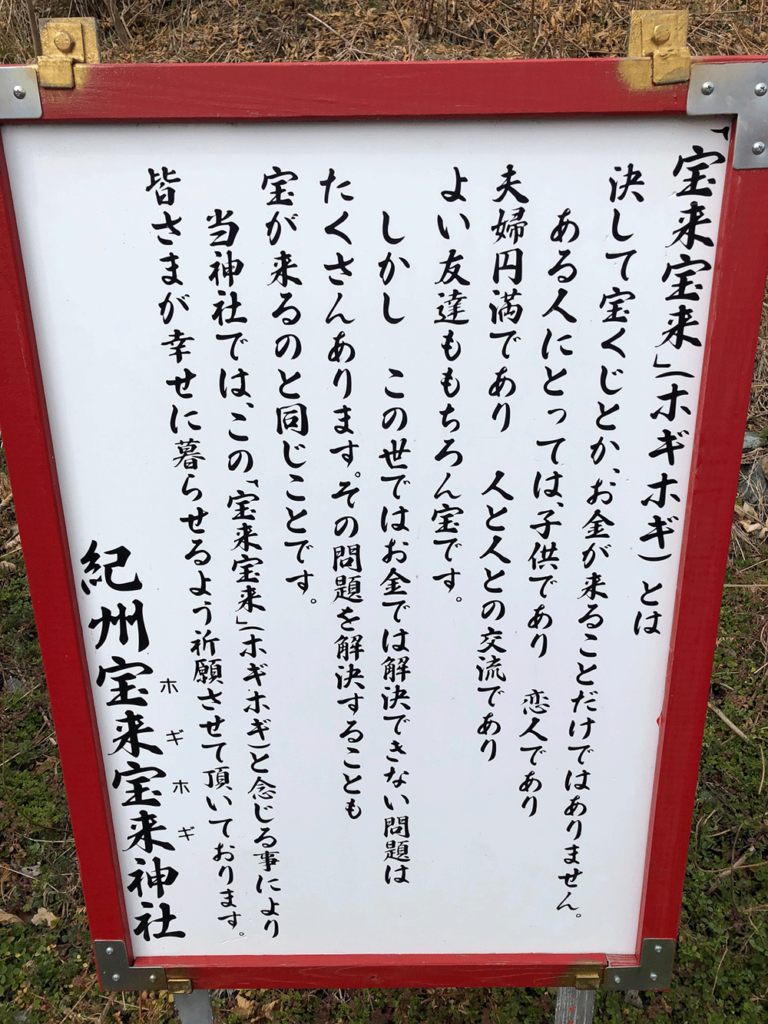 「宝来宝来」(ホギホギ)とは
決して宝くじとか、お金が来ることだけではありません。
ある人にとっては、子供であり　恋人であり
夫婦円満であり　人と人との交流であり
よい友達ももちろん宝です。
しかし　この世ではお金では解決できない問題は
たくさんあります。その問題を解決することも
宝が来るのと同じことです。
当神社では、この「宝来宝来」(ホギホギ)と念じる事により
皆さまが幸せに暮らせるよう祈願させて頂いております。
紀州宝来宝来神社
ホギホギ